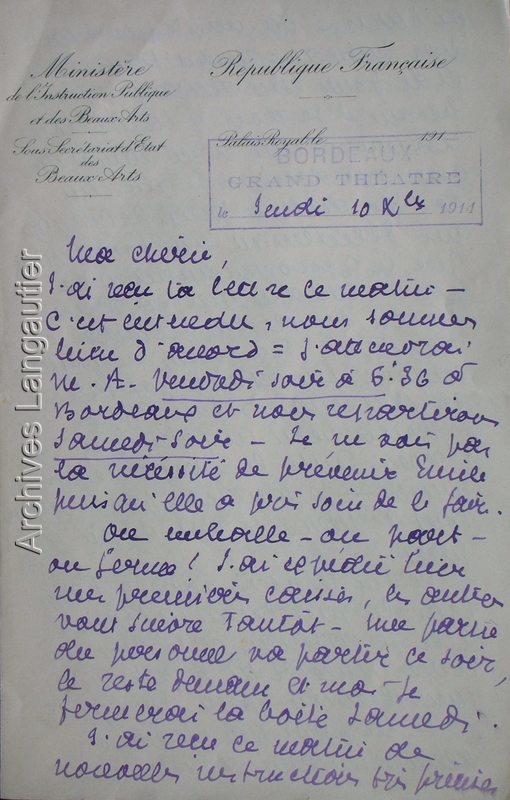 Ministère
de l'Instruction Publique
et des Beaux Arts
Sous Secrétariat d'Etat
des
Beaux Arts
République Française
Palais Royal, le 191
BORDEAUX
GRAND THÉATRE
le Jeudi 10 Xbre 1914
Ma chérie,
J'ai reçu ta lettre ce matin –
C'est entendu, nous sommes
bien d'accord = J'attendrai
M. A. Vendredi soir à 6:36 à
Bordeaux et nous repartirons
Samedi soir – Je ne vois pas
la nécessité de prévenir Emile
puisqu'elle a pris soin de le faire.
On emballe – on part –
on ferme! J'ai expédié hier
mes premières caisses, les autres
vont suivre tantôt – une partie
du personnel va partir ce soir,
le reste demain et moi je
fermerai la boîte Samedi.
J'ai reçu ce matin de
nouvelles instructions très précises
Archives Langautier